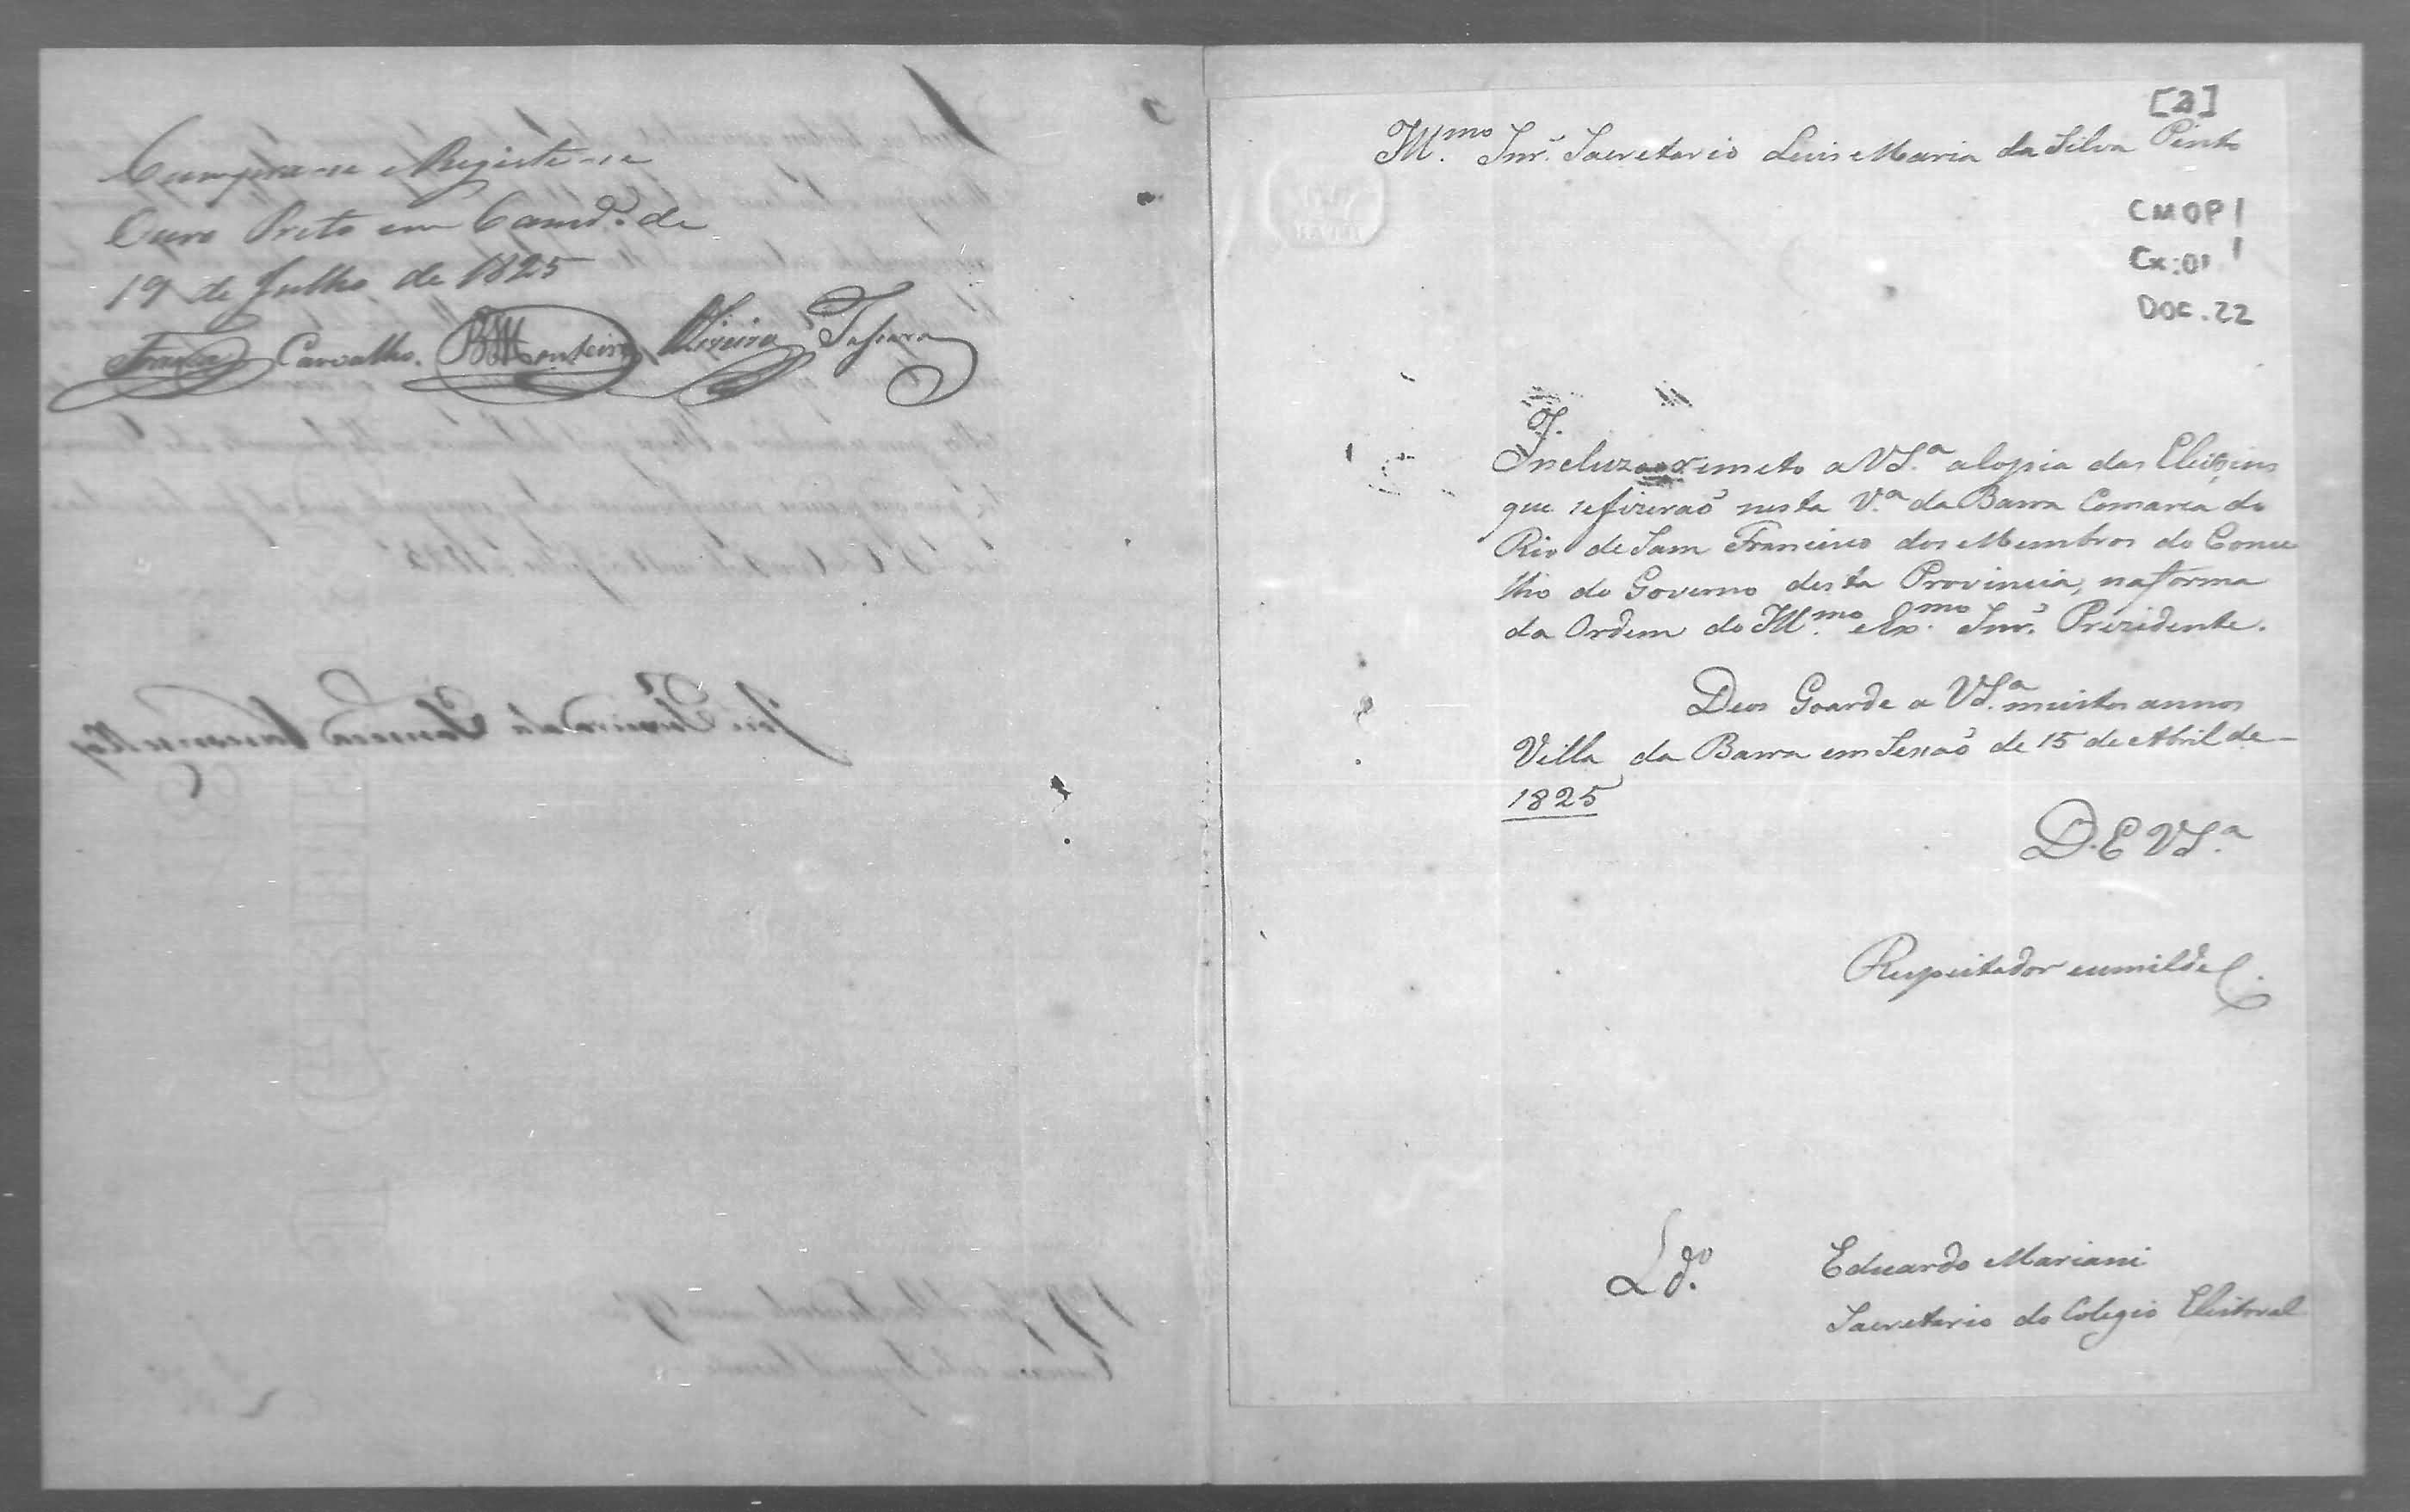 Cumpra-se e Registe-se
Ouro Preto em Camrª. de
19 de Julho de 1825
Carvalho. BMMonteiro Oliveira
[2]
Illmo. Snr. Sacretario Luis Maria da Silva Pinto
CMOP1
Cx:01
DOC.22
Incluza remeto a VS.ª a Copia das Eleiçoins
que se fizeraõ nesta V.ª da Barra Comarca do
Rio de Sam Francisco dos Membros do Conse
lho do Governo desta Provincia, na forma
da Ordem do Illmo. e Exmo. Snr. Prezidente.
Deos Goarde a VS.ª muitos annos
Villa da Barra em Sessaõ de 15 de Abril de
1825
D.E VS.ª
Respeitador eumilde C.
Ldo.
Eduardo Mariani
Sacretario do Colegio Eleitoral